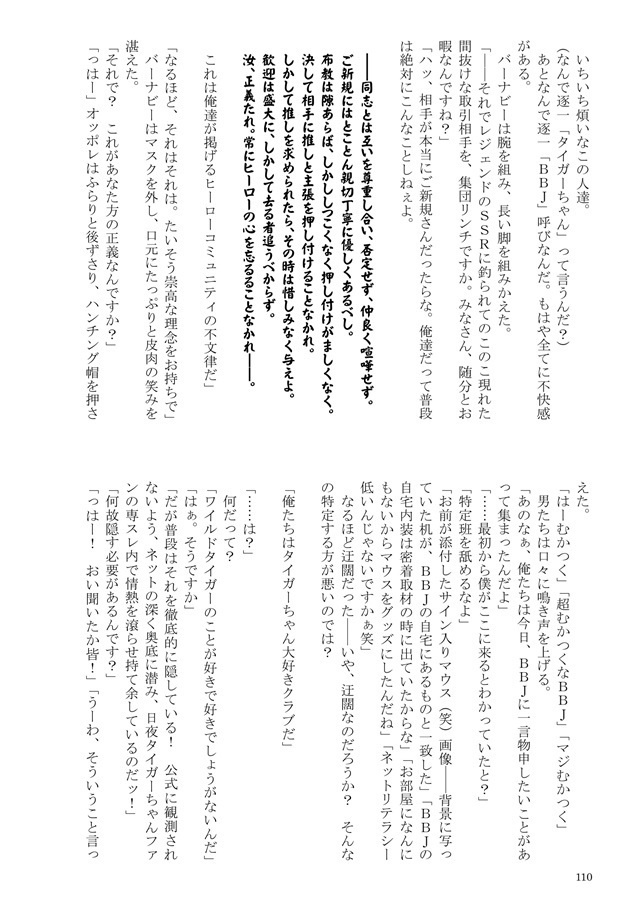 いちいち煩いなこの人達。
(なんで逐一「タイガーちゃん」って言うんだ？)
あとなんで逐一「ＢＢＪ」呼びなんだ。もはや全てに不快感
がある。
バーナビーは腕を組み、長い脚を組みかえた。
「――それでレジェンドのＳＳＲに釣られてのこのこ現れた
間抜けな取引相手を、集団リンチですか。みなさん、随分とお
暇なんですね？」
「ハッ、相手が本当にご新規さんだったらな。俺達だって普段
は絶対にこんなことしねぇよ。
――同志とは互いを尊重し合い、否定せず、仲良く喧嘩せず。
ご新規にはとことん親切丁寧に優しくあるべし。
布教は隙あらば、しかししつこくなく押し付けがましくなく。
決して相手に推しと主張を押し付けることなかれ。
しかして推しを求められたら、その時は惜しみなく与えよ。
歓迎は盛大に、しかして去る者追うべからず。
汝、正義たれ。常にヒーローの心を忘るることなかれ――。
これは俺達が掲げるヒーローコミュニティの不文律だ」
「なるほど、それはそれは。たいそう崇高な理念をお持ちで」
バーナビーはマスクを外し、口元にたっぷりと皮肉の笑みを
湛えた。
「それで？　これがあなた方の正義なんですか？」
「っはー」オッポレはふらりと後ずさり、ハンチング帽を押さ
えた。
「はーむかつく」「超むかつくなＢＢＪ」「マジむかつく」
男たちは口々に鳴き声を上げる。
「あのなぁ、俺たちは今日、ＢＢＪに一言物申したいことがあ
って集まったんだよ」
「……最初から僕がここに来るとわかっていたと？」
「特定班を舐めるなよ」
「お前が添付したサイン入りマウス（笑）画像――背景に写っ
ていた机が、ＢＢＪの自宅にあるものと一致した」「ＢＢＪの
自宅内装は密着取材の時に出ていたからな」「お部屋になんに
もないからマウスをグッズにしたんだね」「ネットリテラシー
低いんじゃないですかぁ笑」
なるほど迂闊だった――いや、迂闊なのだろうか？　そんな
の特定する方が悪いのでは？
「俺たちはタイガーちゃん大好きクラブだ」
「……は？」
何だって？
「ワイルドタイガーのことが好きで好きでしょうがないんだ」
「はぁ。そうですか」
「だが普段はそれを徹底的に隠している！　公式に観測され
ないよう、ネットの深く奥底に潜み、日夜タイガーちゃんファ
ンの専スレ内で情熱を滾らせ持て余しているのだッ！」
「何故隠す必要があるんです？」
「っはー！　おい聞いたか皆！」「うーわ、そういうこと言っ
110